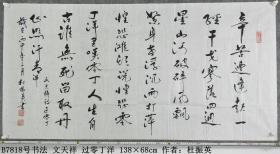 辛苦遭逢起一
经干戈寥落四周
星山河破碎风飘
絮身世浮沉雨打萍
惶恐滩头说惶恐零
丁洋里叹零丁人生自
古谁无死留取丹
心照汗青
B7818号书法 文天祥 过零丁洋 138×68cm 作者：杜振英